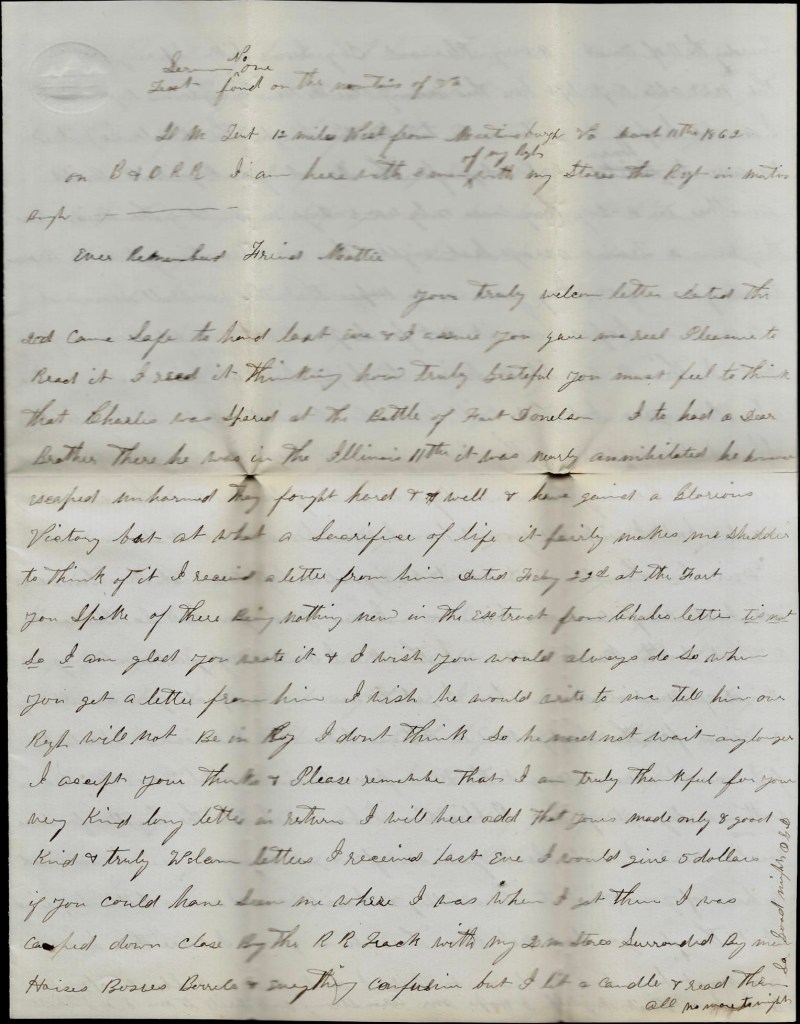 No
one
Text found on the
2 M Tent 12 miles West from Martinsburgh Va March 11th 1862
of my Regt
on B & O R R I am here with with my Stores the Regt in Martins
burgh
Ever Remembered Friend Mattie
Your truly welcom letter Dated the
2nd Came Safe to hand last Eve & I assure you gave me real Pleasure to
Read it I read it thinking how truly Grateful you must feel to think
that Charles was Spared at the Battle of Fort Donelson I to had a Dear
Brother There he was in the Illinois 11th it was nearly annihilated he
escaped unharmed they fought hard & well & have gained a Glorious
Victory but at what a Sacrifise of life it fairly makes me shudder
to think of it I received a letter from him Dated Feby 22d at the Fort
you Spoke of there being nothing new in the Extract from Charles letter tis not
So I am glad you wrote it & I wish you would always do So when
you get a letter from him I wish he would write to me tell him our
Regt will not Be in I dont think So he need not wait any longer
I accept your thanks & Please remember that I am truly thankful for your
very Kind long letter in return I will here add that yours made only 8 good
Kind & truly Welcom letters I received last Eve I would give 5 dollars
if you could have Seen me where I was when I got them I was
camped down close By the R R Track with my 2 m Stores Surrounded By men
Horses Boxes Barrels & Everything confusion but I lit a candle & read them
all no more to night
So Good night